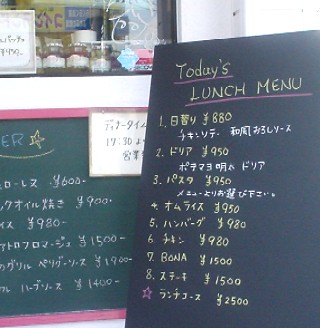 Today's
LUNCH MENU
1. 日替り ¥880
チキンソテー 和風おろしソース
2. ドリア ¥950
ポテマヨ明太ドリア
3. パスタ ¥950
メニューよりお選び下さい。
4. オムライス ¥950
5. ハンバーグ ¥980
6. チキン ¥980
7. BONA ¥1500
8. ステーキ ¥1500
☆ ランチコース ¥2500
ディナータイム
17:30より
営業
ER ☆
ローレス ¥600-
オイル焼き ¥900-
イス ¥980-
フロマージュ ¥1500-
グリル ペリグーソース ¥1900-
ル ハーブソース ¥1400-